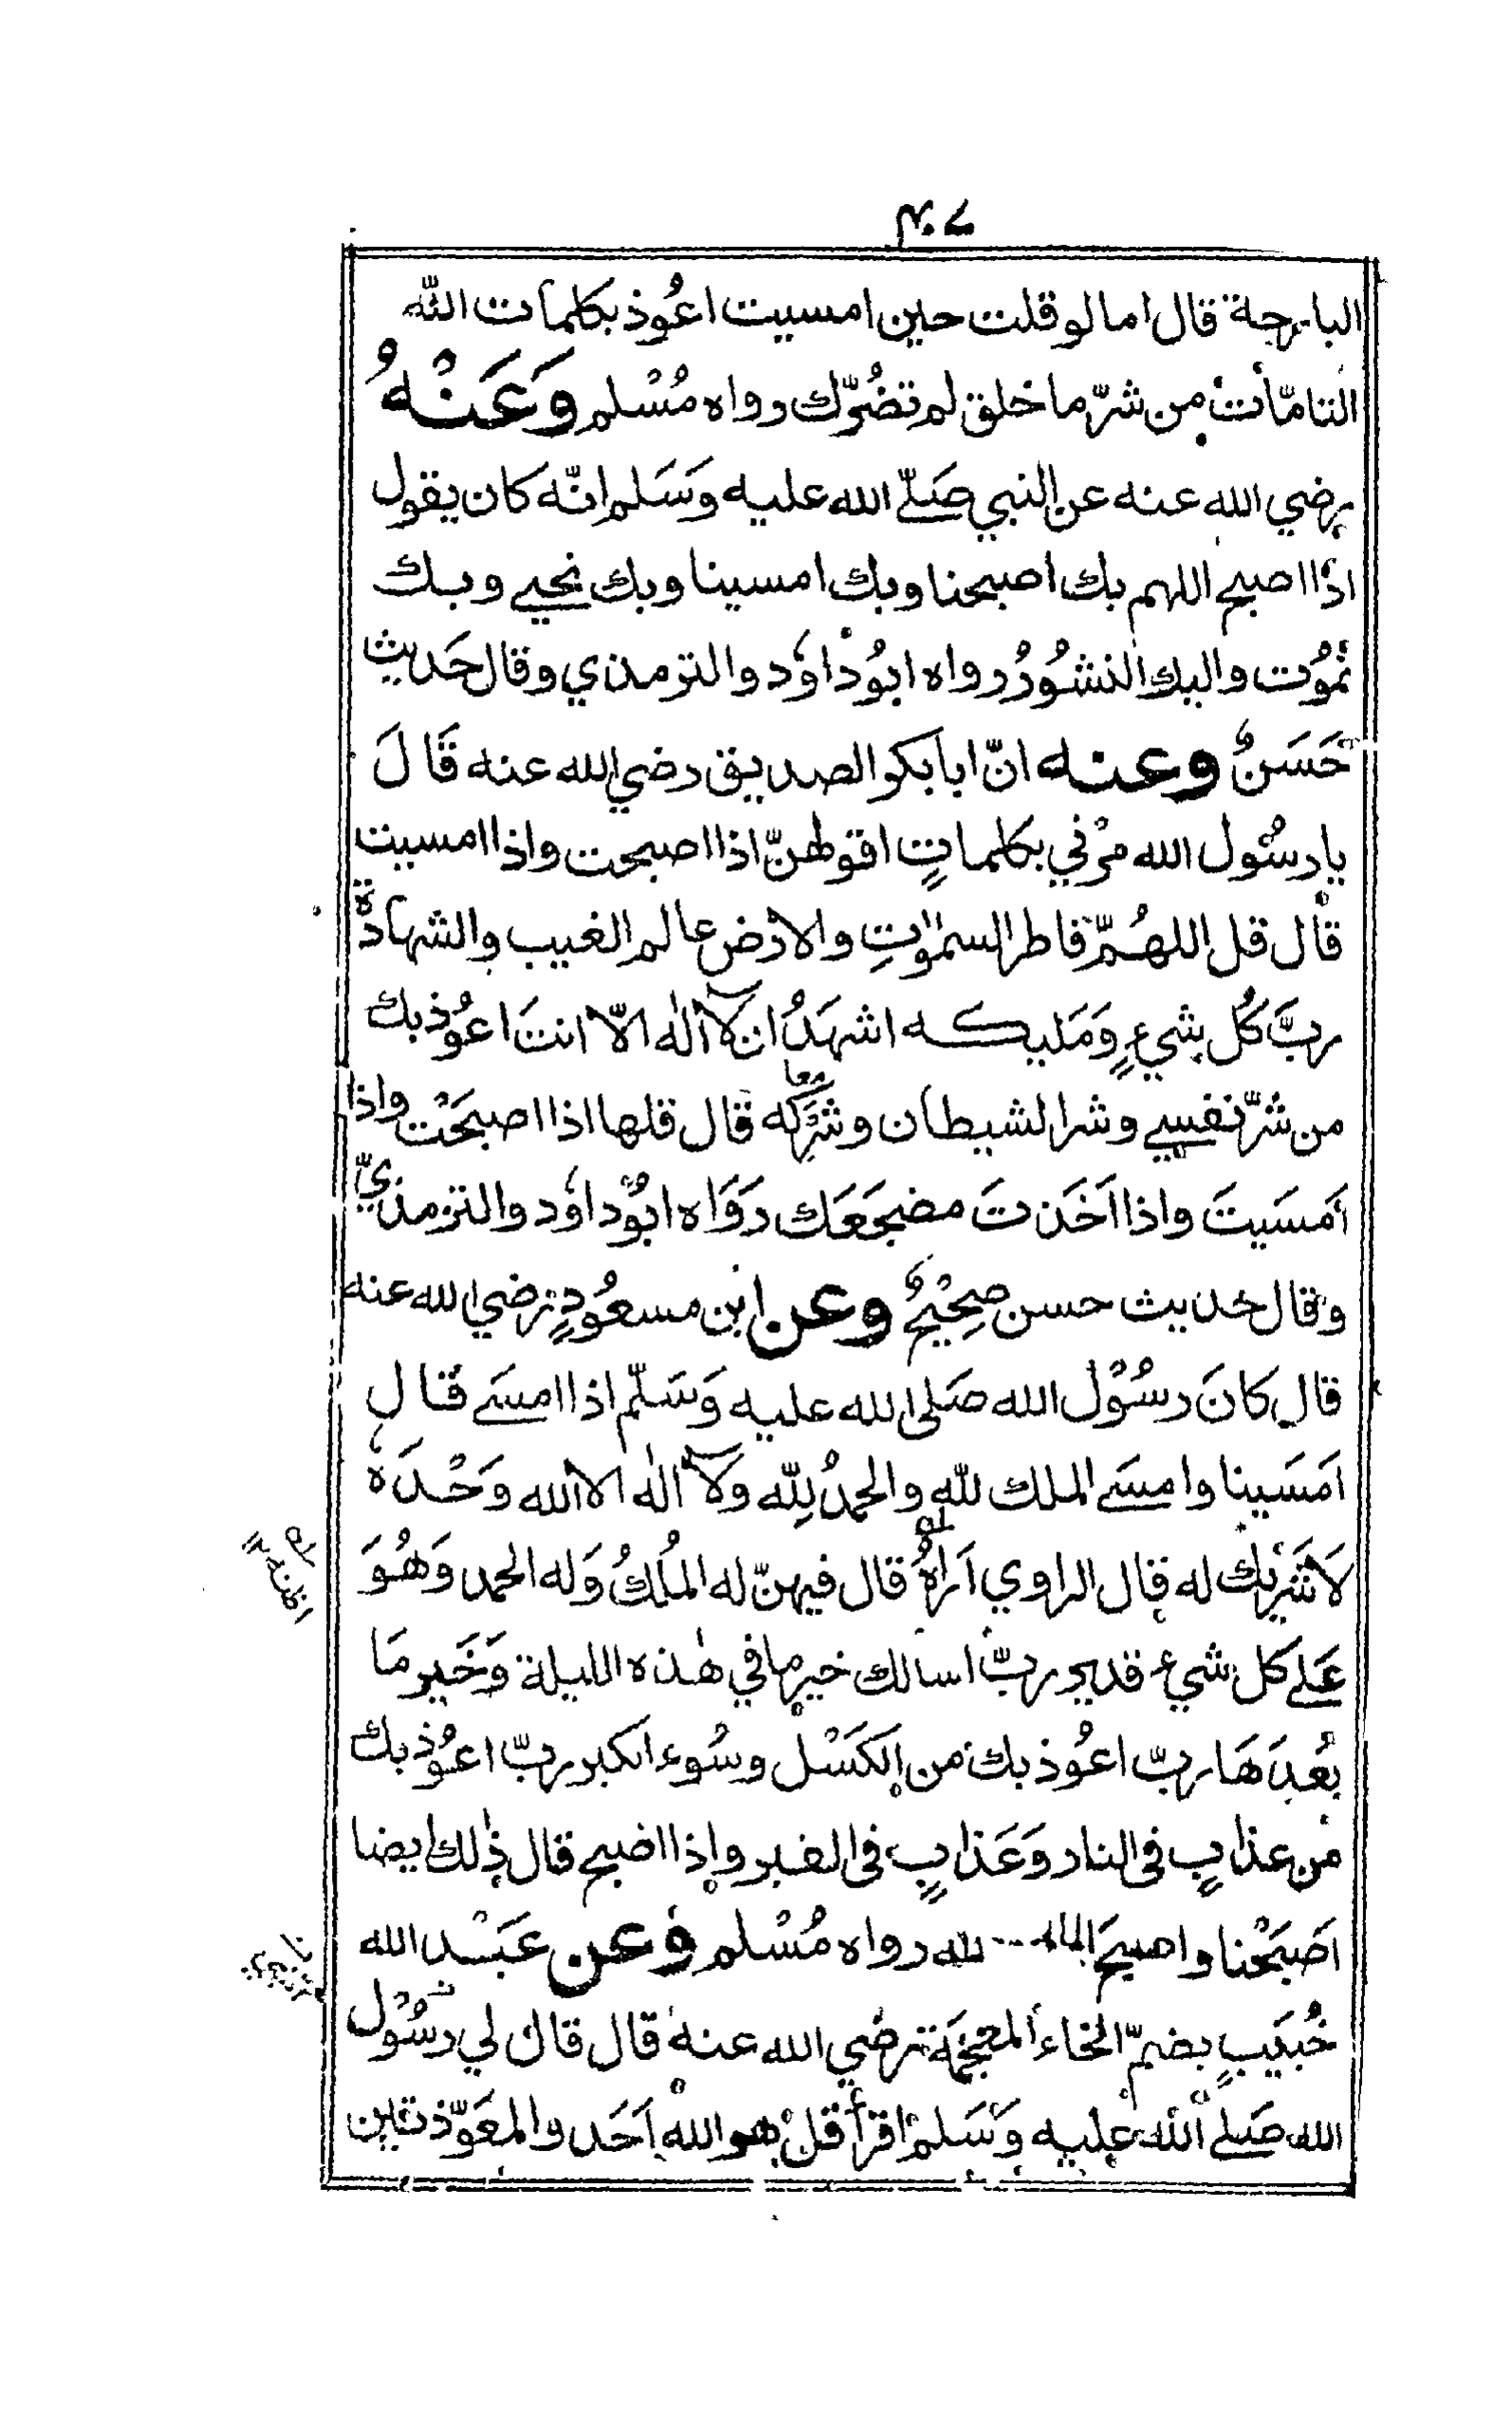 ٣٠٧
البارحة قال اما لو قلت حين امسيت اعُوذ بكلمات اللّٰه
التامّات من شرّ ما خلق لم تضُرّك رواه مُسْلم وَعَنْهُ
رضي الله عنه عن النبي صَلّے الله عليه وَسَلم انّه كان يقول
اذا اصبح اللهم بك اصبحنا وبك امسينا وبك نحيے وبك
نمُوت واليك النشُورُ رواه ابُو داوٗد والترمذي وقال حَديث
حَسَنٌ وعنه انّ ابا بكر الصديق رضي الله عنه قَالَ
يا رسُول الله مرْني بكلماتٍ اقولهنّ اذا اصبحت واذا امسيت
قال قل اللهُمّ فاطر السمٰوٰتِ والارض عالم الغيب والشهادة
ربَّ كُل شيءٍ وَمَليكه اشهَدُ ان لآ الٰه الّا انتَ اعُوذ بك
من شرّ نفسے وشر الشيطان وشَرِكه قال قلها اذا اصبحَتْ واذا
معا
اَمسَيتَ واذا اَخَذتَ مضجَعَك رَوَاه ابُو داوٗد والترمذيّ
وقال حديث حسن صحِيْحٌ وعن ابن مسعُودٍ رضي الله عنه
قال كانَ رسُوْل الله صَلى الله عليه وَسَلّم اذا امسَے قال
اَمَسَينا وامسَے الملك للّه والحمدُ لِلّه ولآ الٰه الا الله وَحْدَهٗ
لَا شَرْيك له قال الراوي اَراهُ قال فيهنّ له المُلكُ وَله الحمد وَهُوَ
له
له
اظنه ١٢
عَلے كل شيء قدير ربّ اسالك خير ما في هٰذه الليلة وَخَير مَا
بَعدَهَا ربّ اعُوذ بك من الكَسَل وسُوء الكبر ربّ اعُوذ بك
من عذابٍ في النار وَعَذابٍ في القبر واذا اصبح قال ذٰلك ايضا
اَصبَحْنا واصبحَ الملك لله رواه مُسْلم وعن عَبْد الله
خُبيَبٍ بضمّ الخاء المعجَمَة رضي الله عنه قال قال لي رسُوْل
الله صَلے الله عليه وَسَلم اقرأ قلْ هو الله اَحَد والمعَوّذتين